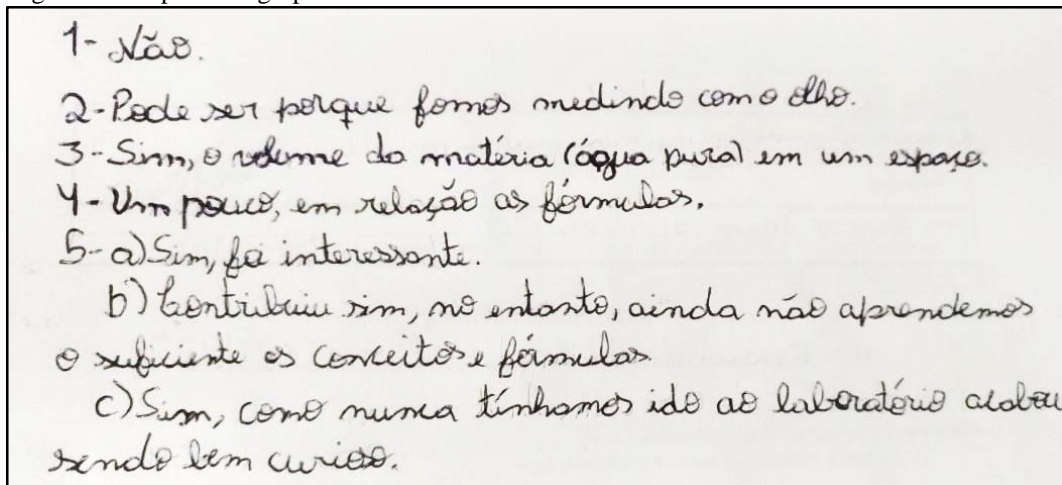 1- Não.
2- Pode ser porque fomos medindo com o olho.
3- Sim, o volume da matéria (água pura) em um espaço.
4- Um pouco, em relação as fórmulas.
5- a) Sim, foi interessante.
b) Contribuiu sim, no entanto, ainda não aprendemos
o suficiente os conceitos e fórmulas.
c) Sim, como nunca tínhamos ido ao laboratório acabou
sendo bem curioso.